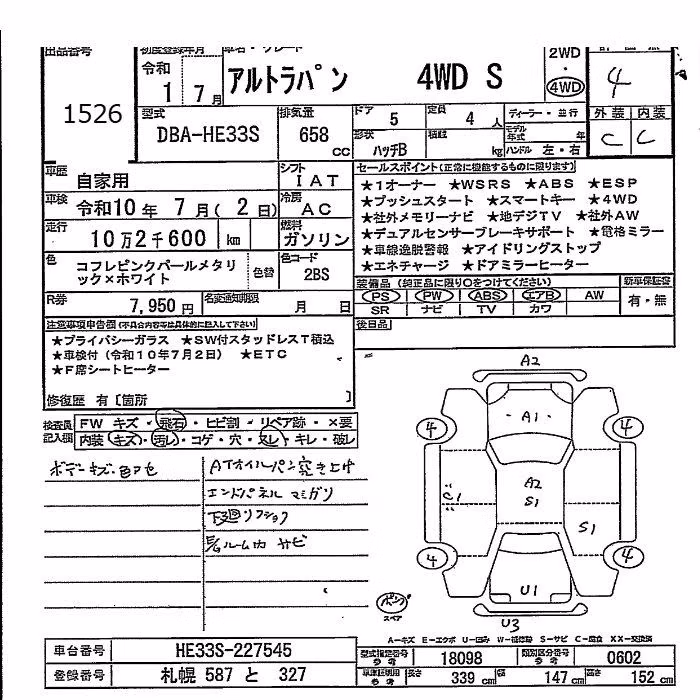 出品番号
1526
初度登録年月
令和
1 7月
車名・グレード
アルトラパン 4WD S
2WD
・
4WD
4
型式
DBA-HE33S
排気量
658 cc
ドア
5
定員
4 人
形状
ハッチB
積載
kg
ディーラー・並行
モデル年式 年
ハンドル 左・右
外装 内装
C C
車歴
自家用
シフト
IAT
車検
令和10年 7月( 2日)
冷房
AC
走行
10万2千600 km
燃料
ガソリン
色
コフレピンクパールメタリック×ホワイト
色替
色コード
2BS
R券
7,950円
名変通知期限
月 日
セールスポイント(正常に機能するものに限ります)
★1オーナー ★WSRS ★ABS ★ESP
★プッシュスタート ★スマートキー ★4WD
★社外メモリーナビ ★地デジTV ★社外AW
★デュアルセンサーブレーキサポート ★電格ミラー
★車線逸脱警報 ★アイドリングストップ
★エネチャージ ★ドアミラーヒーター
装備品 (純正品に限り〇をつけてください)
PS PW ABS エアB AW
SR ナビ TV カワ
新車保証書
有・無
後日品
注意事項申告欄(不具合内容等は具体的に記入して下さい)
★プライバシーガラス ★SW付スタッドレスT積込
★車検付 (令和10年7月2日) ★ETC
★F席シートヒーター
修復歴 有〔箇所 〕
検査員記入欄
FW キズ・飛石・ヒビ割・リペア跡・×要
内装 キズ・汚レ・コゲ・穴・スレ・キレ・破レ
ボデーキズ・凹アセ
ATオイルパン突き上げ
エンドパネル マガリ
下廻リフショク
E/gルーム内 サビ
A2
A1
4 4
C1
A2
S1
S1
4 4
U1
U3
パンク
スペア
A-キズ E-エクボ U-凹み W-補修跡 S-サビ C-腐食 XX-交換済
車台番号 HE33S-227545
登録番号 札幌 587 と 327
型式指定番号 参考 18098
類別区分番号 参考 0602
車庫証明用 参考
長さ 339 cm
幅 147 cm
高さ 152 cm